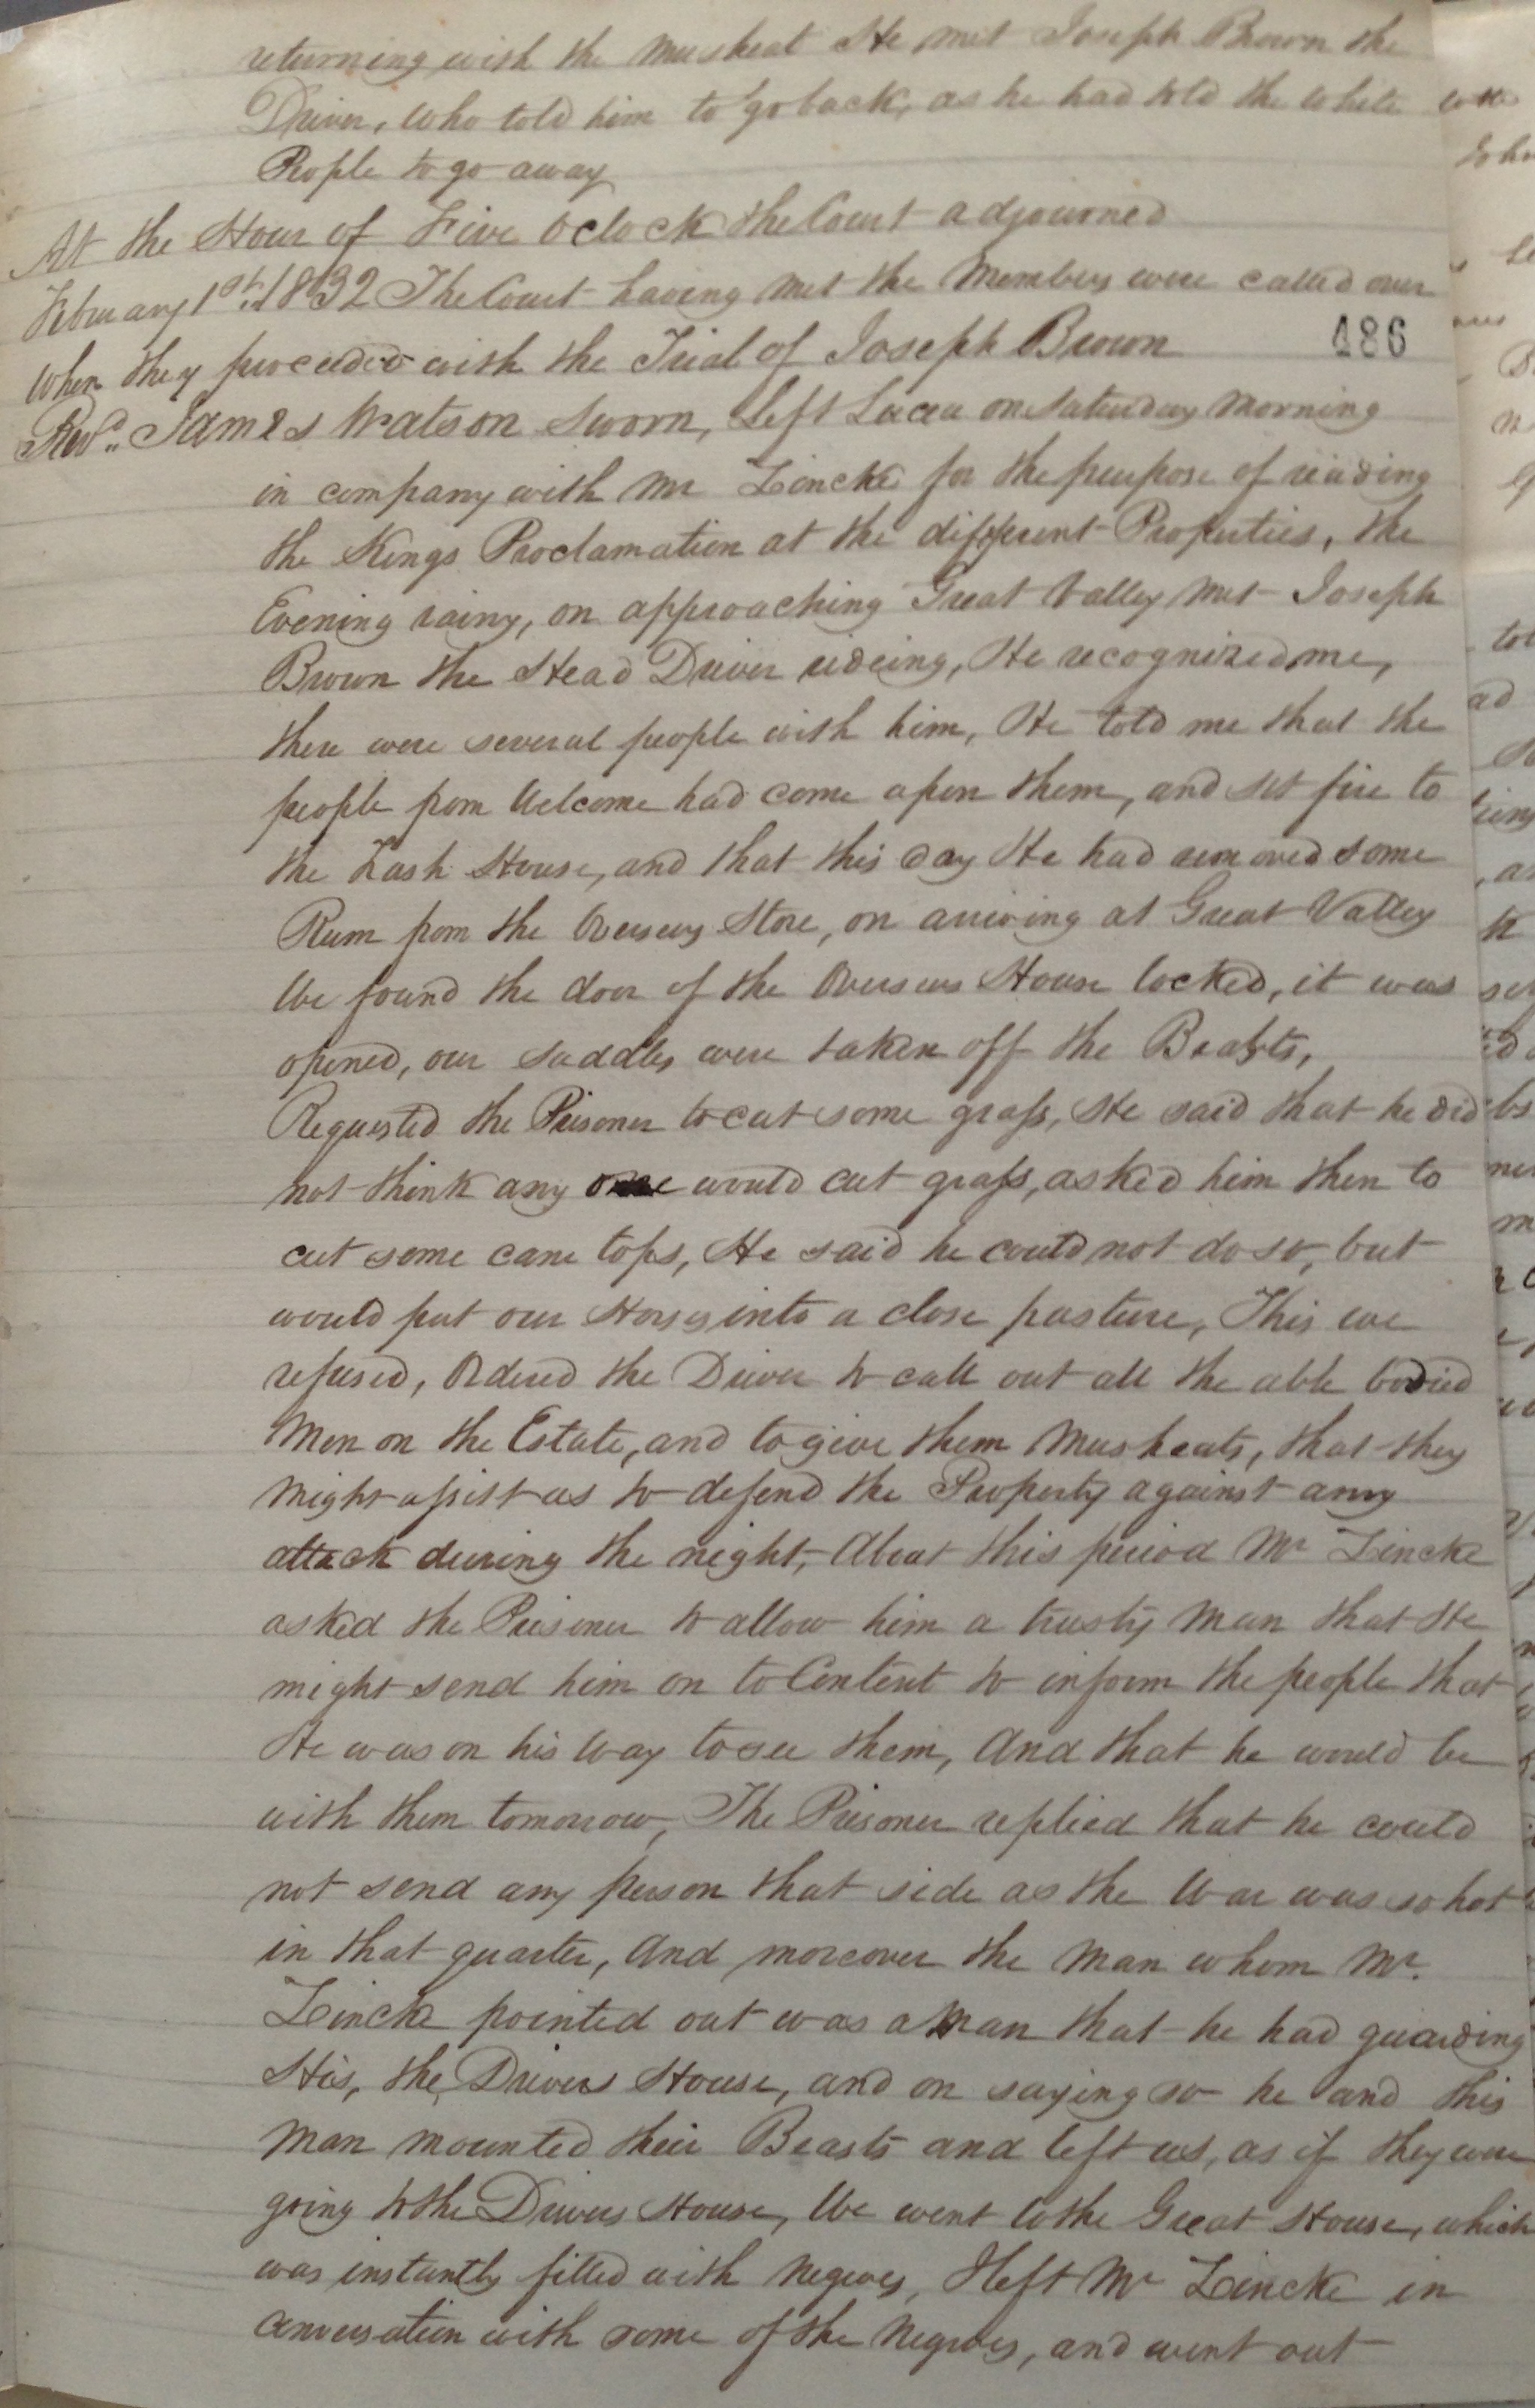 returning with the muskeat He met Joseph Brown the
Driver, who told him to go back, as he had told the white
People to go away
At the Hour of Five O clock the Court adjourned
February 1st. 1832 The Court having met the Members were called over
when they proceeded with the Trial of Joseph Brown
186
Revd. James Watson Sworn, Left Lucea on Saturday Morning
in company with Mr Lincke for the purpose of reading
the Kings Proclamation at the different Properties, the
Evening rainy, on approaching Great Valley met Joseph
Brown the Head Driver rideing, He recognized me,
there were several people with him, He told me that the
people from Welcome had come apon them, and set fire to
the Trash House, and that this day He had removed some
Rum from the Overseers Store, on arriving at Great Valley
We found the door of the Overseers House locked, it was
opened, our saddles were taken off the Beasts,
Requested the Prisoner to cut some grass, He said that he did
not think any one would cut grass, asked him then to
cut some cane tops, He said he could not do so, but
would put our Horses into a close pasture, This we
refused, Ordered the Driver to call out all the able bodied
Men on the Estate, and to give them Muskeats, that they
Might assist us to defend the Property against any
attack during the night, About this period Mr Lincke
asked the Prisoner to allow him a trusty Man that He
might send him on to Content to inform the people that
He was on his way to see them, And that he would be
with them tomorrow, The Prisoner replied that he could
not send any person that side as the War was so hot
in that quarter, And moreover the Man whom Mr.
Lincke pointed out was a Man that he had guarding
His, the Drivers House, and on saying so he and this
Man mounted their Beasts and left us, as if they were
going to the Drivers House, We went to the Great House, which
was instantly filled with Negroes, I left Mr Lincke in
conversation with some of the Negroes, and went out